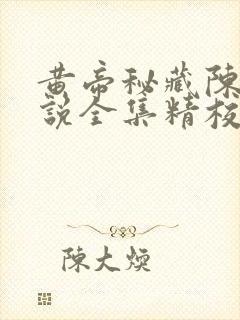 黄帝秘藏陳
說全集精校
陳大煐